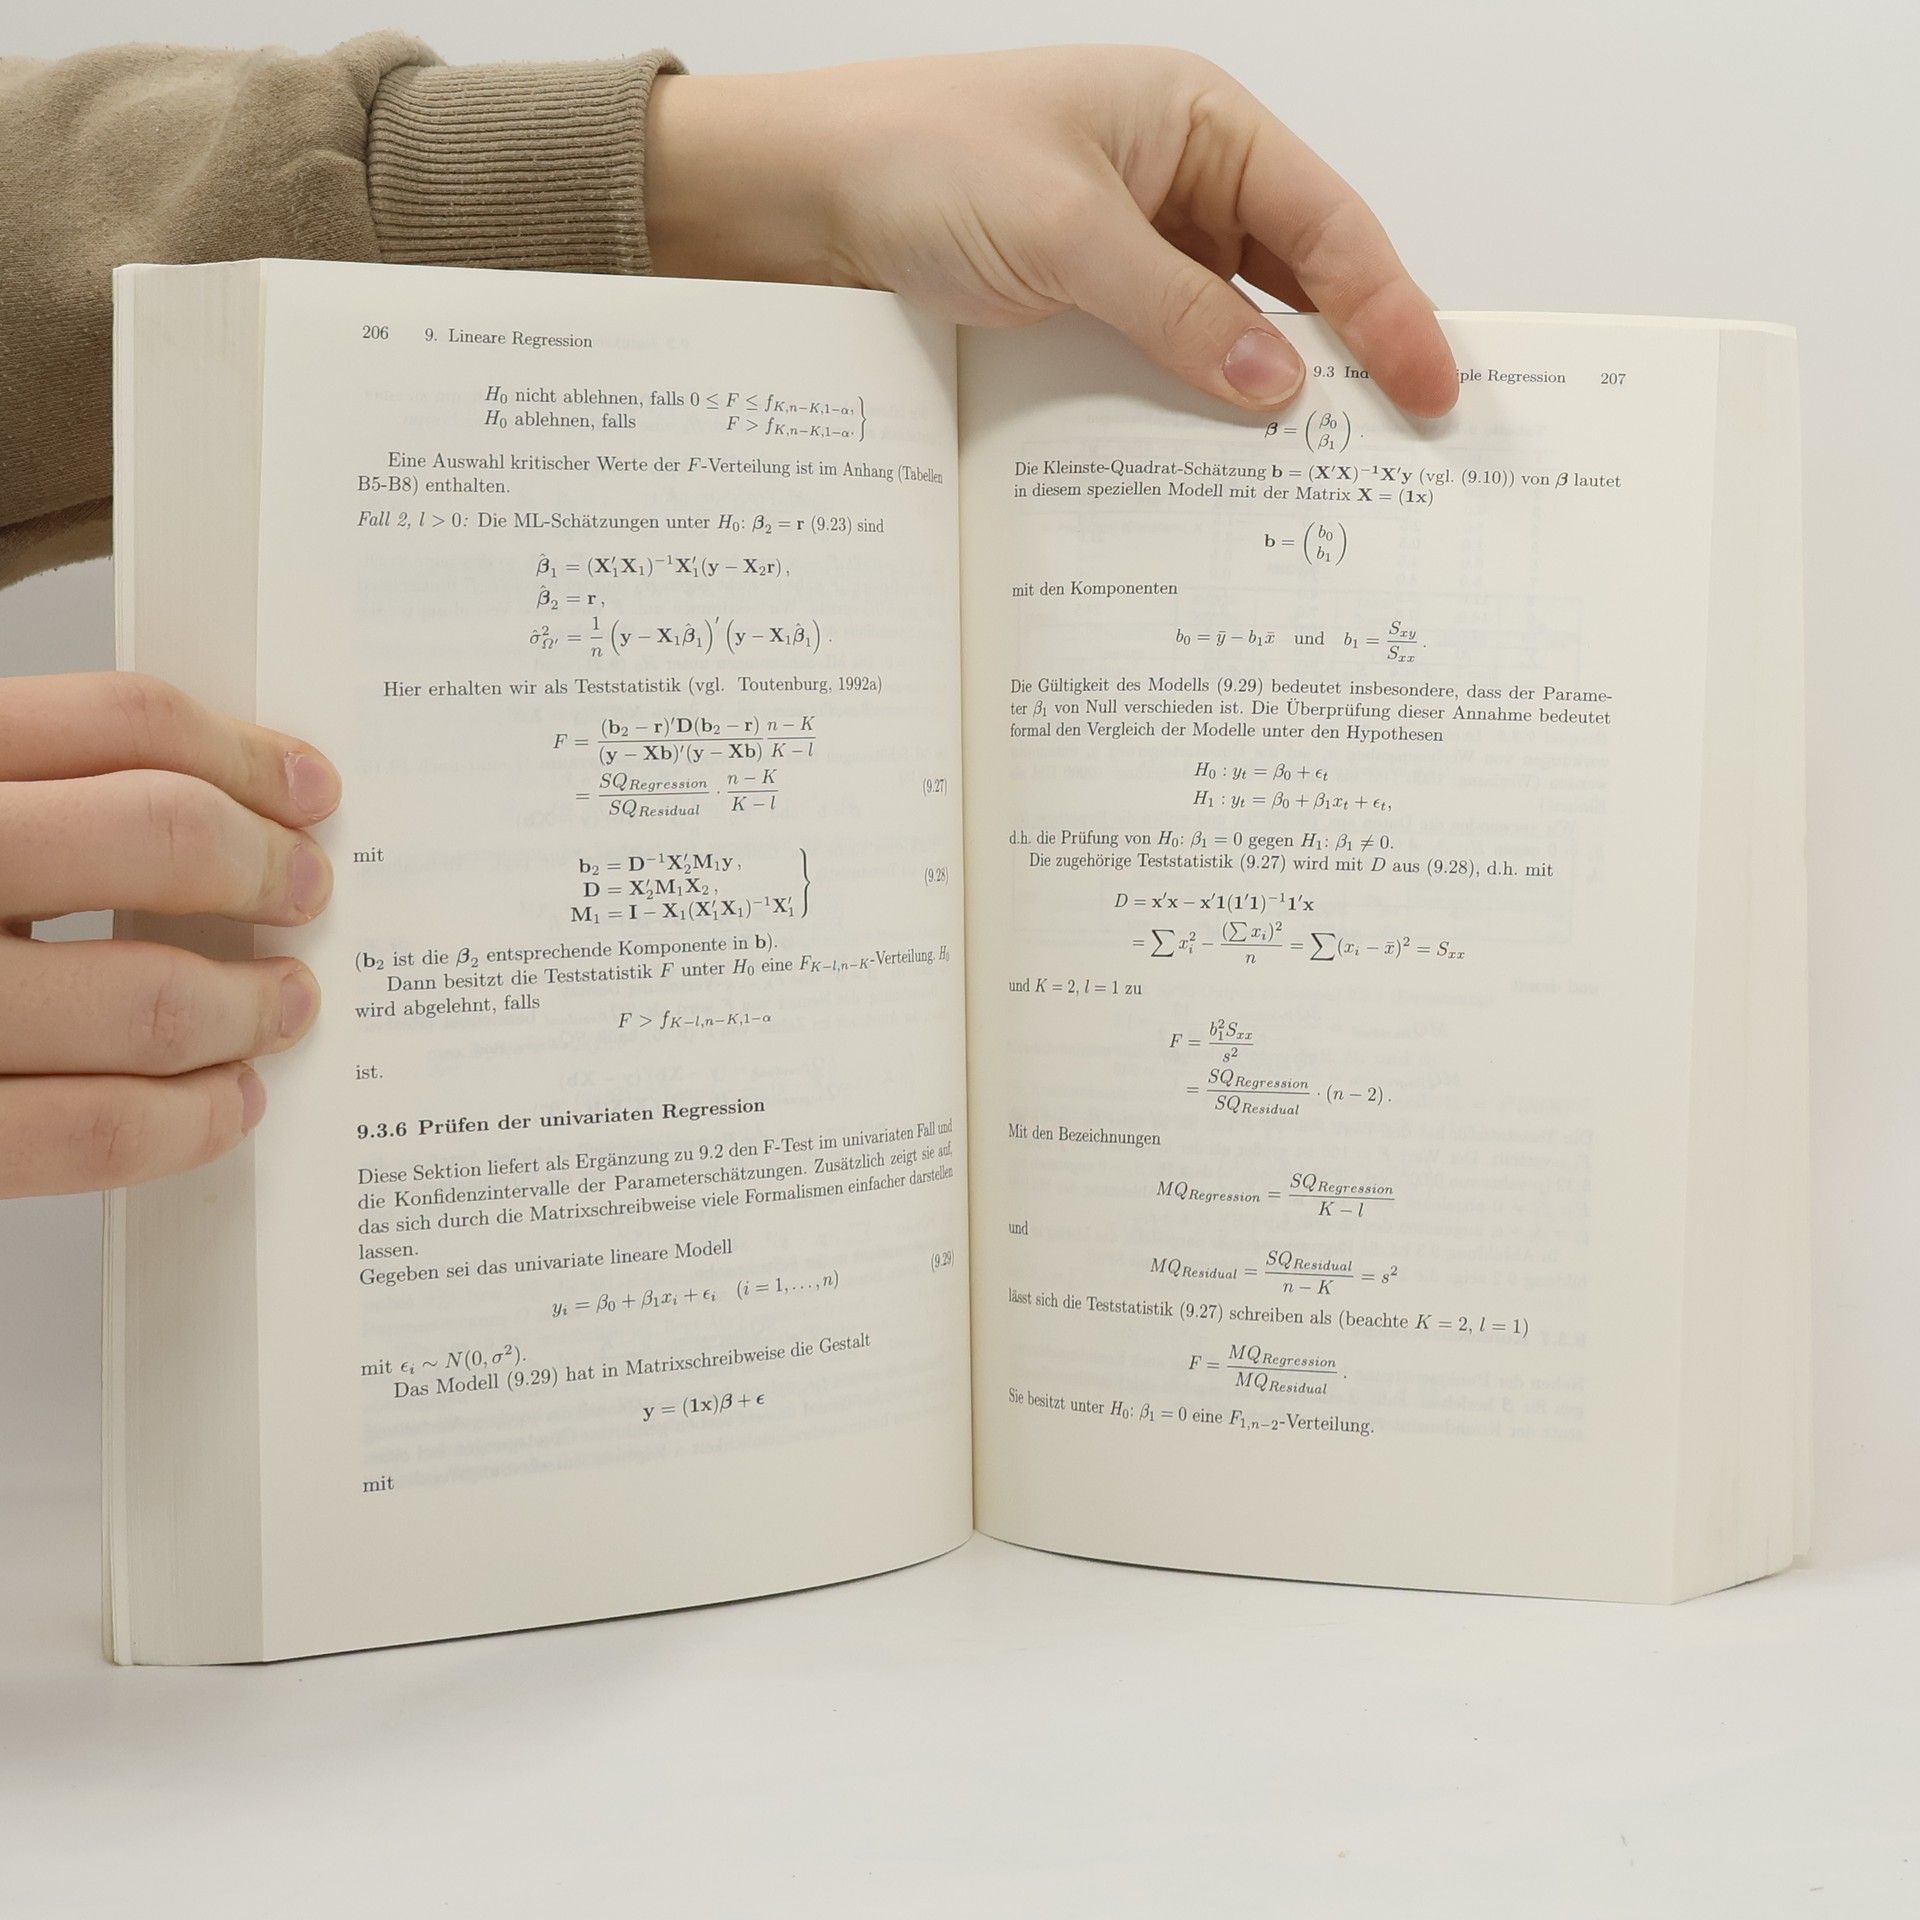 206 9. Lineare Regression
H₀ nicht ablehnen, falls 0 ≤ F ≤ f_{K,n−K,1−α},
H₀ ablehnen, falls F > f_{K,n−K,1−α}.
Eine Auswahl kritischer Werte der F-Verteilung ist im Anhang (Tabellen
B5-B8) enthalten.
Fall 2, l > 0: Die ML-Schätzungen unter H₀: β₂ = r (9.23) sind
β̂₁ = (X₁′X₁)⁻¹X₁′(y − X₂r),
β̂₂ = r,
σ̂²_{Ω′} = 1/n (y − X₁β̂₁)′ (y − X₁β̂₁).
Hier erhalten wir als Teststatistik (vgl. Toutenburg, 1992a)
F = (b₂ − r)′D(b₂ − r) / (y − Xb)′(y − Xb) (n − K)/(K − l)
= SQ_{Regression}/SQ_{Residual} · (n − K)/(K − l) (9.27)
mit
b₂ = D⁻¹X₂′M₁y,
D = X₂′M₁X₂, (9.28)
M₁ = I − X₁(X₁′X₁)⁻¹X₁′
(b₂ ist die β₂ entsprechende Komponente in b).
Dann besitzt die Teststatistik F unter H₀ eine F_{K−l,n−K}-Verteilung. H₀
wird abgelehnt, falls
F > f_{K−l,n−K,1−α}
ist.
9.3.6 Prüfen der univariaten Regression
Diese Sektion liefert als Ergänzung zu 9.2 den F-Test im univariaten Fall und
die Konfidenzintervalle der Parameterschätzungen. Zusätzlich zeigt sie auf,
das sich durch die Matrixschreibweise viele Formalismen einfacher darstellen
lassen.
Gegeben sei das univariate lineare Modell
y_i = β₀ + β₁x_i + ϵ_i (i = 1, . . . , n) (9.29)
mit ϵ_i ∼ N(0, σ²).
Das Modell (9.29) hat in Matrixschreibweise die Gestalt
y = (1x)β + ϵ
mit
9.3 Ind iple Regression 207
β = (β₀ β₁).
Die Kleinste-Quadrat-Schätzung b = (X′X)⁻¹X′y (vgl. (9.10)) von β lautet
in diesem speziellen Modell mit der Matrix X = (1x)
b = (b₀ b₁)
mit den Komponenten
b₀ = ȳ − b₁x̄ und b₁ = S_{xy}/S_{xx}.
Die Gültigkeit des Modells (9.29) bedeutet insbesondere, dass der Parame-
ter β₁ von Null verschieden ist. Die Überprüfung dieser Annahme bedeutet
formal den Vergleich der Modelle unter den Hypothesen
H₀ : y_t = β₀ + ϵ_t
H₁ : y_t = β₀ + β₁x_t + ϵ_t,
d.h. die Prüfung von H₀: β₁ = 0 gegen H₁: β₁ ≠ 0.
Die zugehörige Teststatistik (9.27) wird mit D aus (9.28), d.h. mit
D = x′x − x′1(1′1)⁻¹1′x
= ∑ x_i² − (∑ x_i)²/n = ∑(x_i − x̄)² = S_{xx}
und K = 2, l = 1 zu
F = b₁²S_{xx}/s²
= SQ_{Regression}/SQ_{Residual} · (n − 2).
Mit den Bezeichnungen
MQ_{Regression} = SQ_{Regression}/(K − l)
und
MQ_{Residual} = SQ_{Residual}/(n − K) = s²
lässt sich die Teststatistik (9.27) schreiben als (beachte K = 2, l = 1)
F = MQ_{Regression}/MQ_{Residual}.
Sie besitzt unter H₀: β₁ = 0 eine F_{1,n−2}-Verteilung.